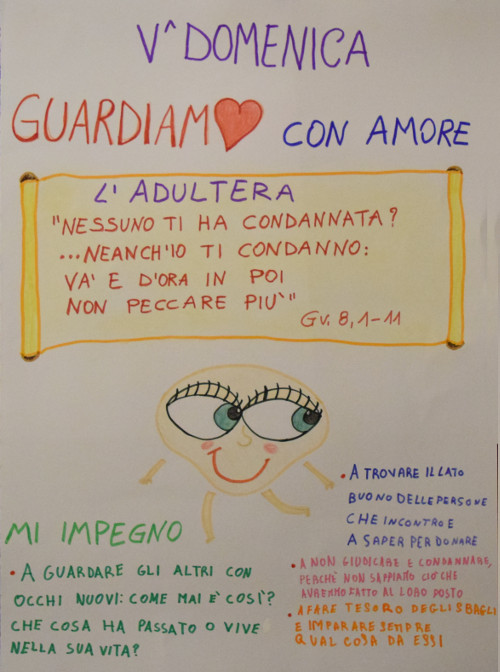 V^ DOMENICA
GUARDIAM♥ CON AMORE
L'ADULTERA
"NESSUNO TI HA CONDANNATA?
...NEANCH'IO TI CONDANNO:
VA' E D'ORA IN POI
NON PECCARE PIU'"
Gv. 8, 1-11
MI IMPEGNO
• A GUARDARE GLI ALTRI CON
OCCHI NUOVI: COME MAI E' COSÌ?
CHE COSA HA PASSATO O VIVE
NELLA SUA VITA?
• A TROVARE IL LATO
BUONO DELLE PERSONE
CHE INCONTRO E
A SAPER PERDONARE
• A NON GIUDICARE E CONDANNARE,
PERCHÈ NON SAPPIAMO CIÒ CHE
AVREMMO FATTO AL LORO POSTO
• A FARE TESORO DEGLI SBAGLI
E IMPARARE SEMPRE
QUALCOSA DA ESSI